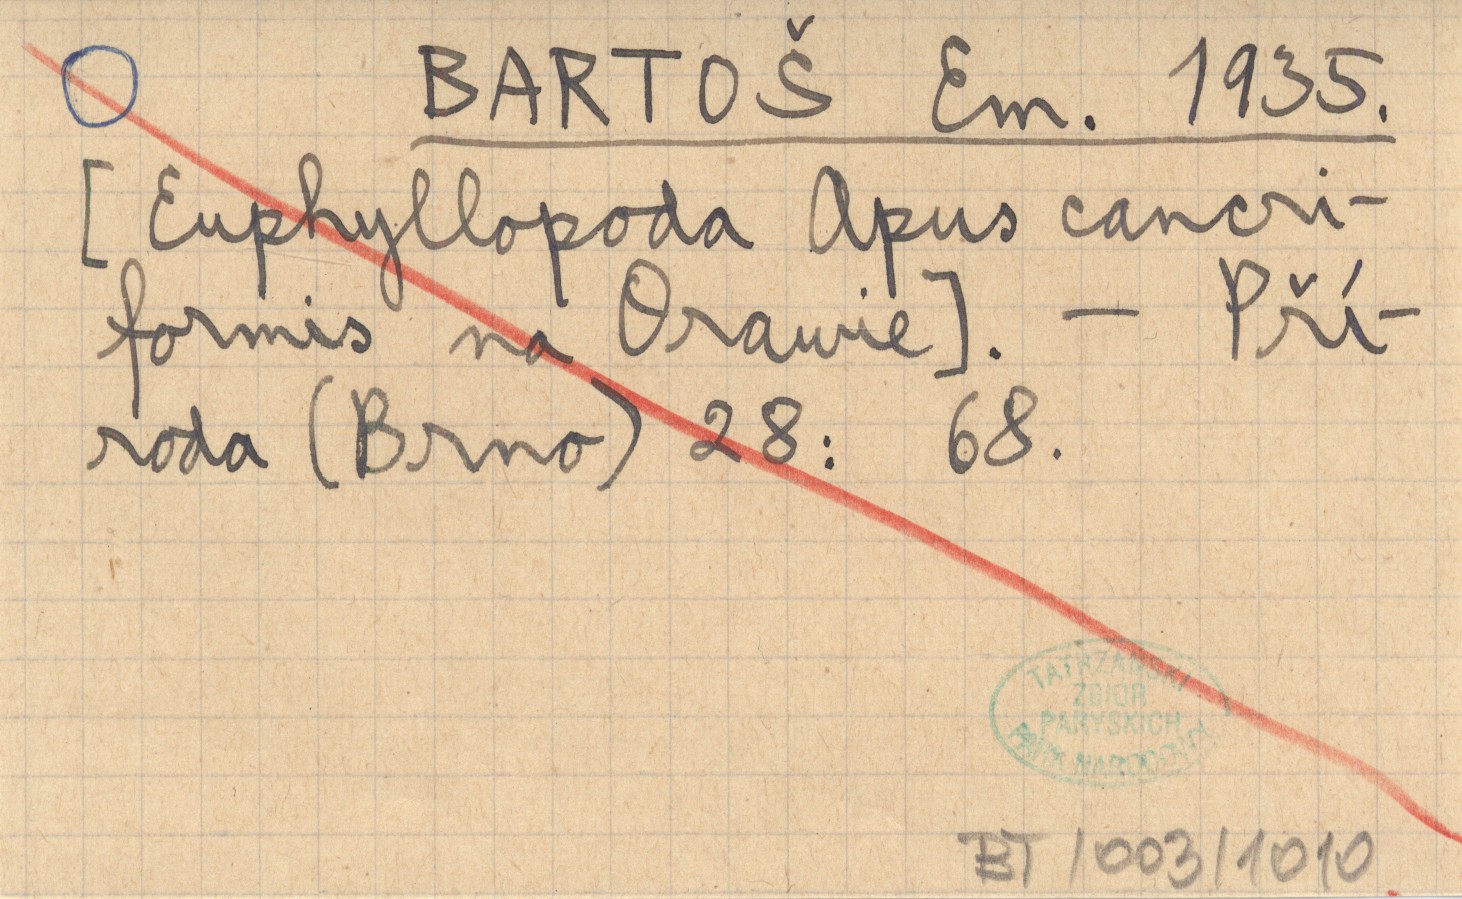 BARTOŠ Em. 1935.
[Euphyllopoda Apus cancri-
formis na Orawie]. — Pří-
roda (Brno) 28: 68.
TATRZAŃSKI
ZBIÓR
PARYSKICH
PARK NARODOWY
BT/003/1010